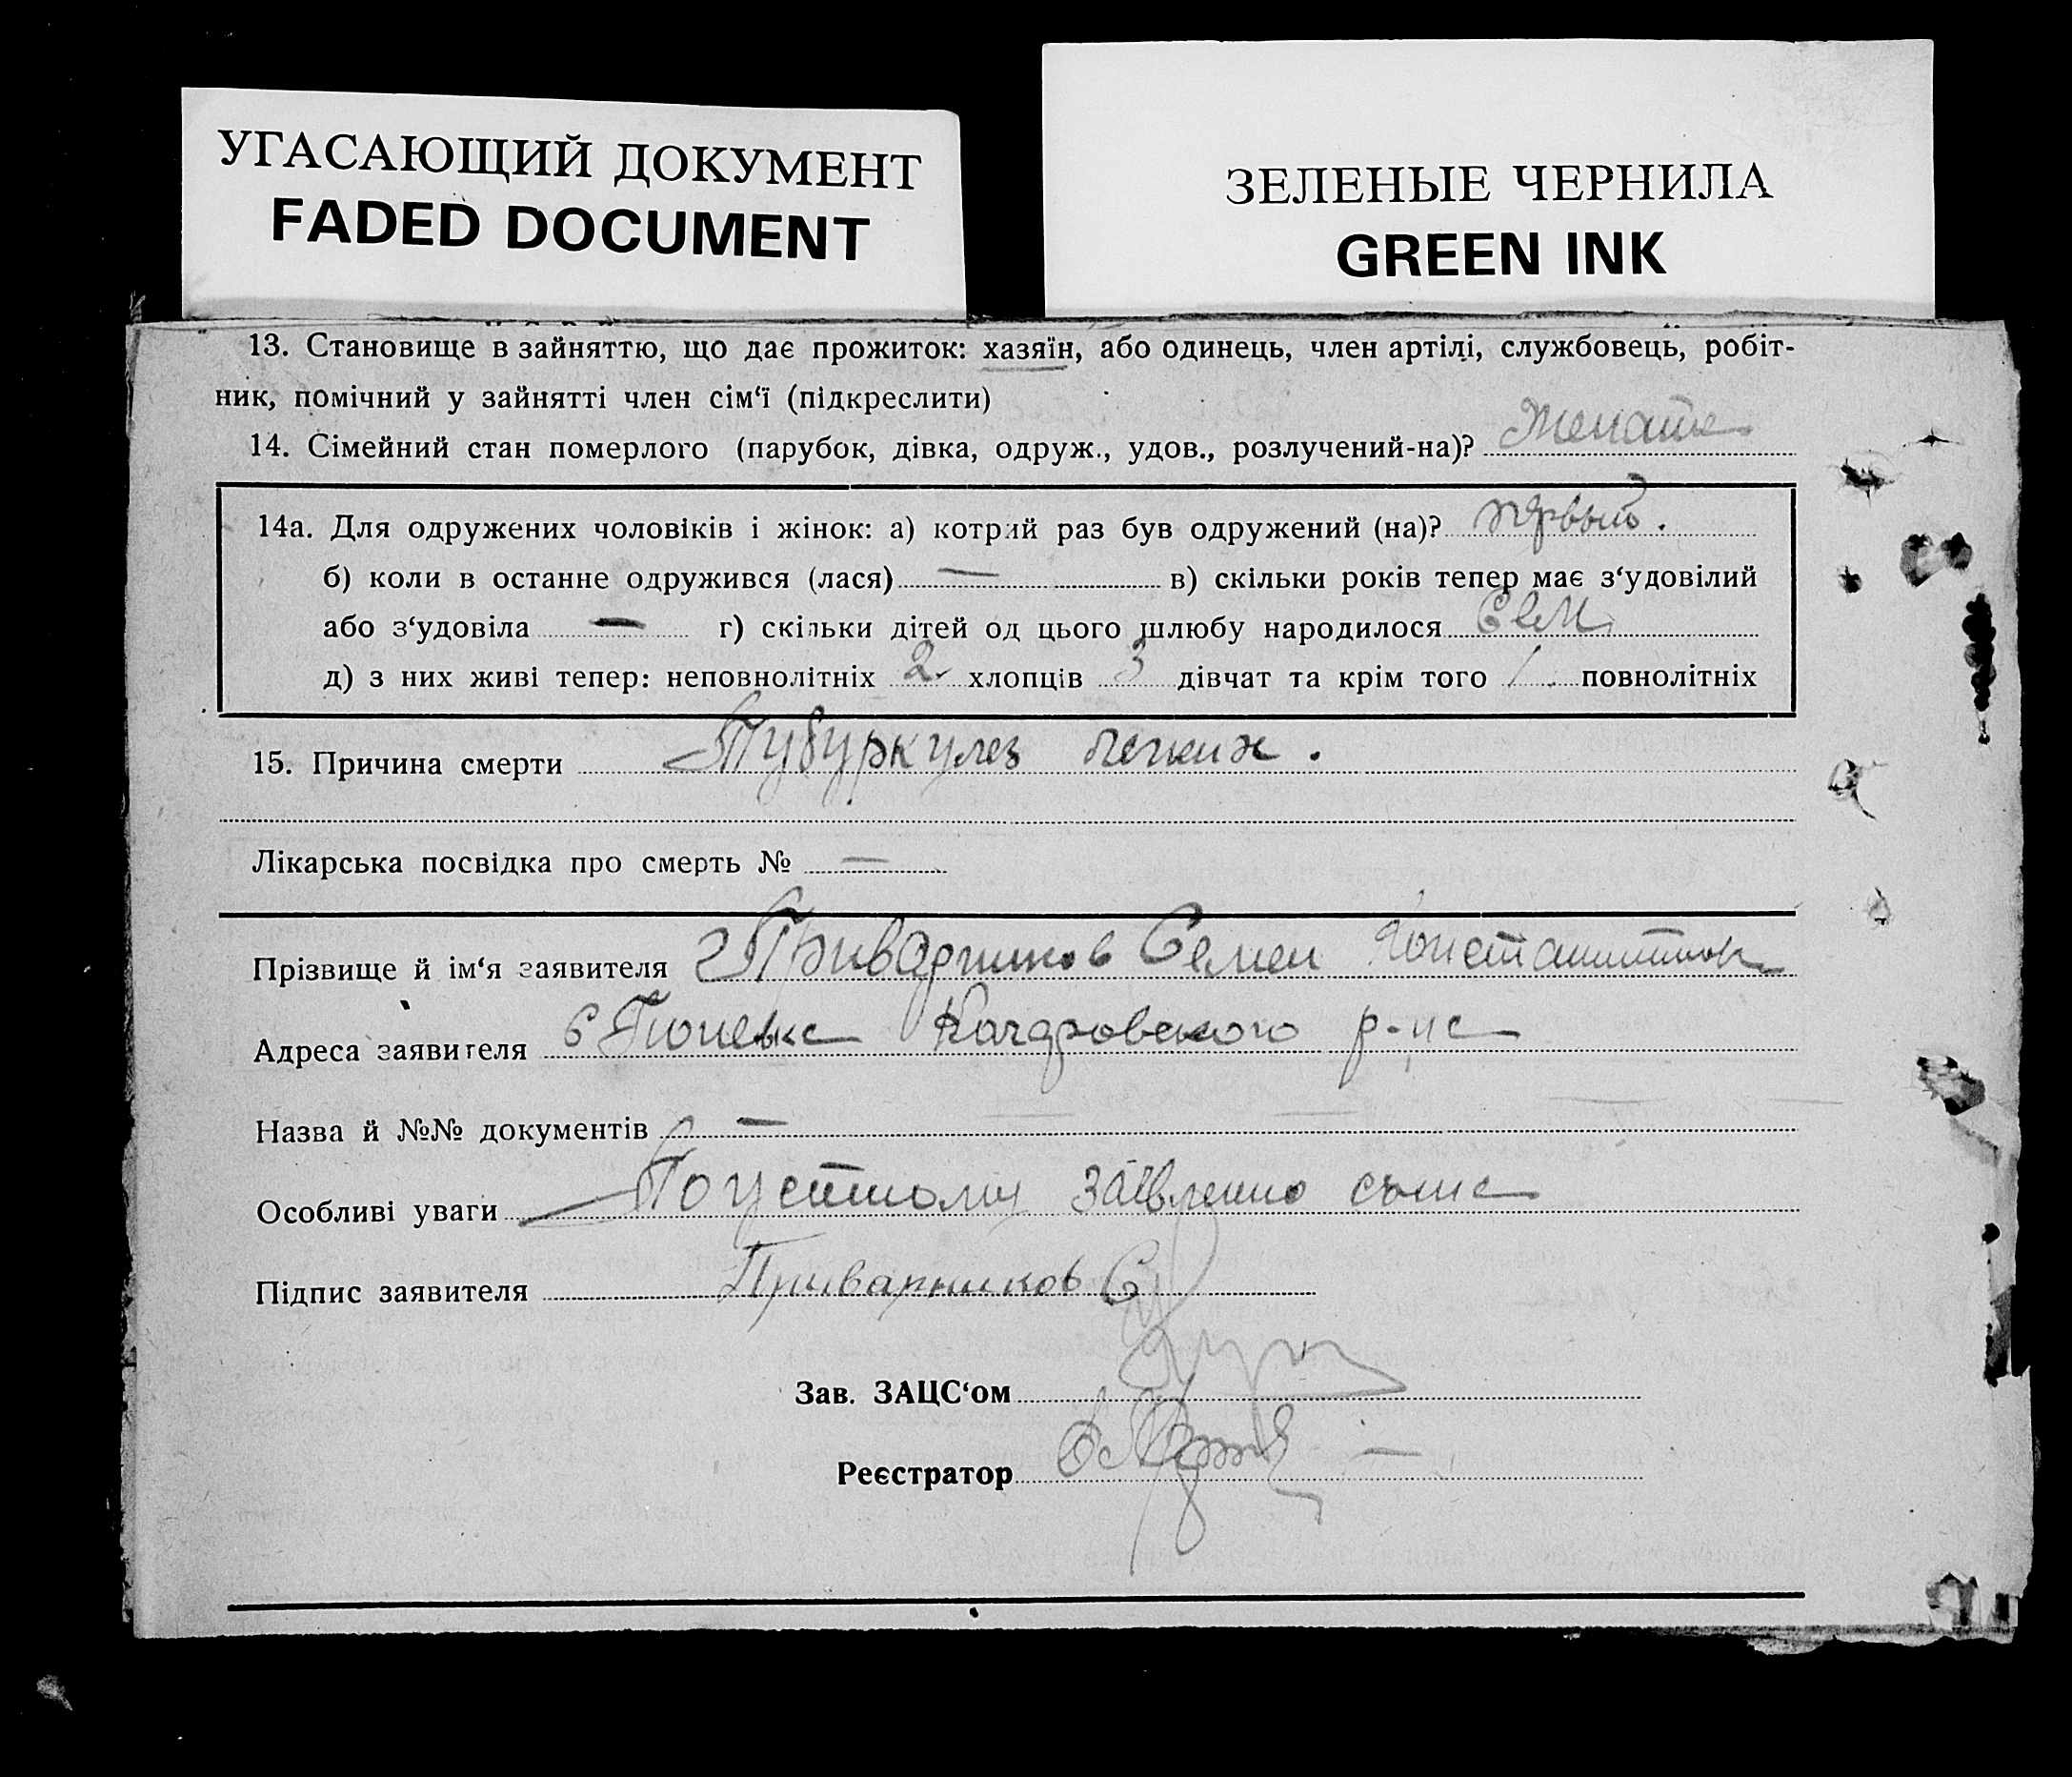 УГАСАЮЩИЙ ДОКУМЕНТ
FADED DOCUMENT
ЗЕЛЕНЫЕ ЧЕРНИЛА
GREEN INK
13. Становище в зайняттю, що дає прожиток: хазяїн, або одинець, член артілі, службовець, робіт-
ник, помічний у зайнятті член сім‘ї (підкреслити)
14. Сімейний стан померлого (парубок, дівка, одруж., удов., розлучений-на)?
14а. Для одружених чоловіків і жінок: а) котрий раз був одружений (на)? первый.
б) коли в останнє одружився (лася) — в) скільки років тепер має з‘удовілий
або з‘удовіла — г) скільки дітей од цього шлюбу народилося
д) з них живі тепер: неповнолітніх 2 хлопців 3 дівчат та крім того 1 повнолітніх
15. Причина смерти Тубуркулез легких.
Лікарська посвідка про смерть № —
Прізвище й ім‘я заявителя Приварников Семен
Адреса заявителя р-на
Назва й №№ документів —
Особливі уваги По устному заявлению сына
Підпис заявителя Приварников С
Зав. ЗАЦС‘ом
Реєстратор